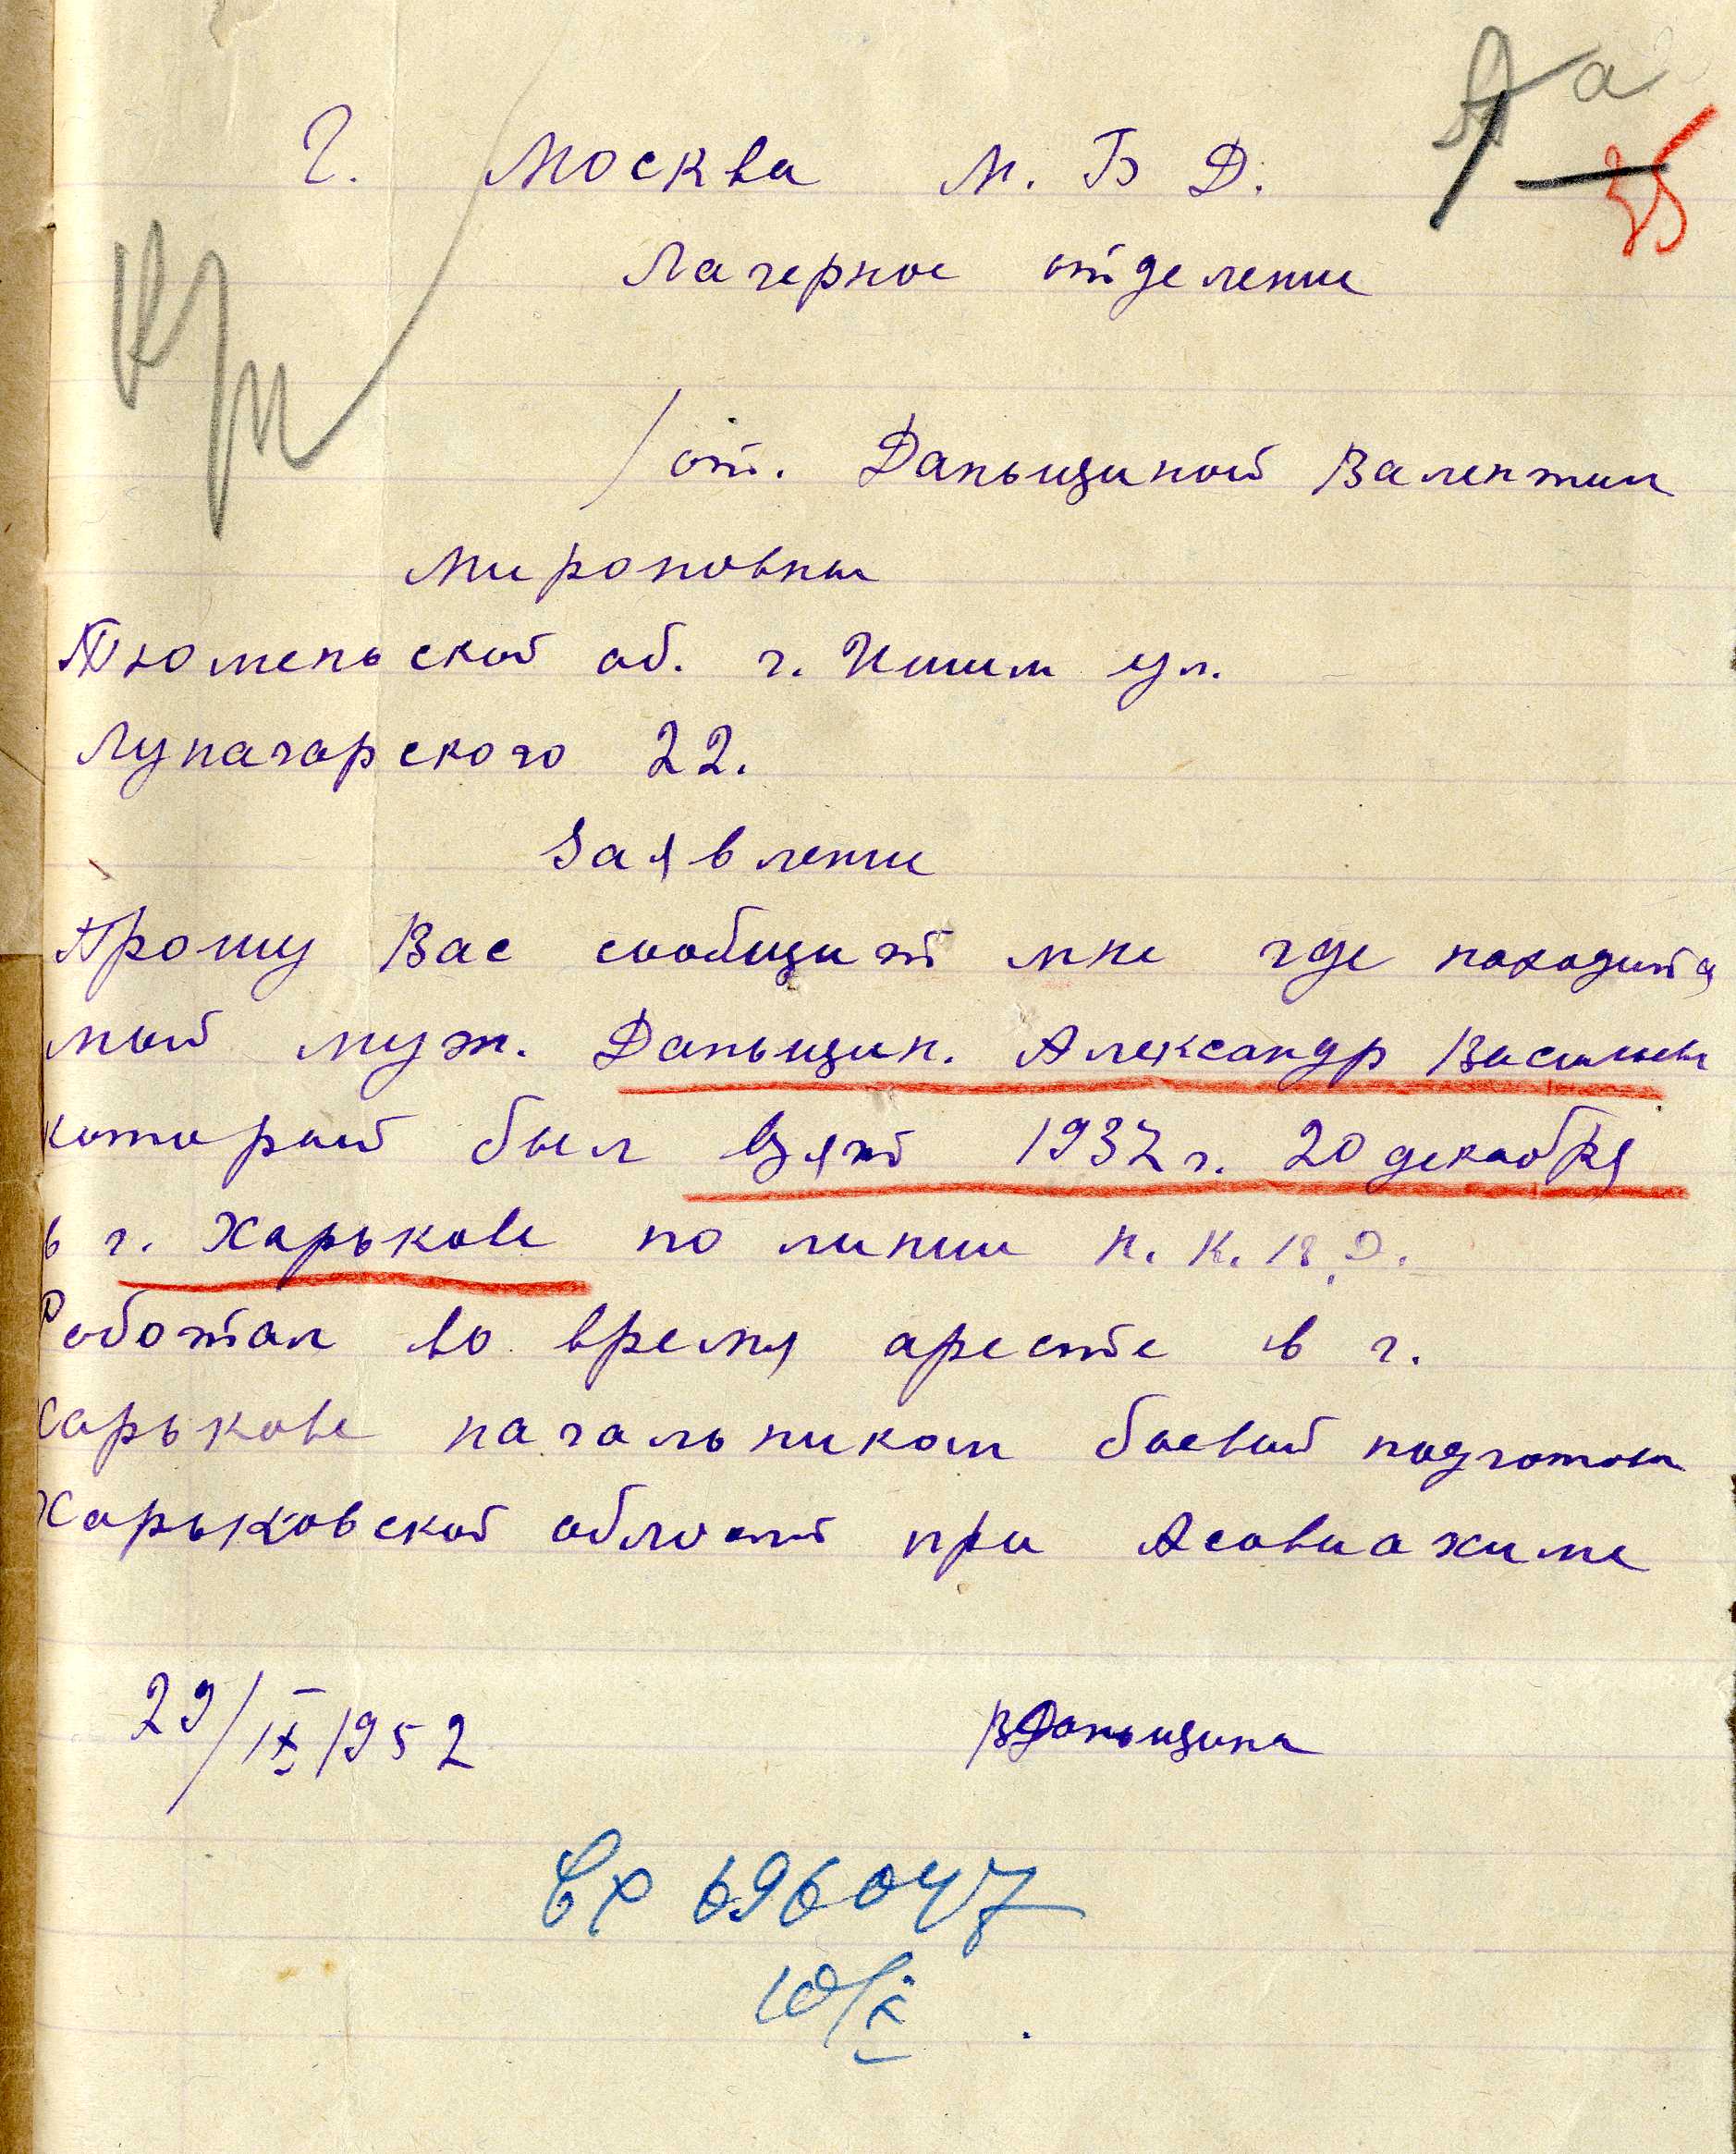 а
35
Г. Москва М. В Д.
Лагерное отделение
/ от. Даньщиной Валентин
Мироновны
Тюменьской об. г. Ишим ул.
Луначарского 22.
Заявление
Прошу Вас сообщит мне где находится
мой муж. Даньщин. Александр Василиев
который был взят 1937 г. 20 декабря
в г. Харькове по линии Н. К. В. Д.
Работал во время аресте в г.
Харькове начальником боевый подготовк
Харьковской област при Асовиахиме
29/IX 1952 ВДаньщина
Вх 696047
10/X